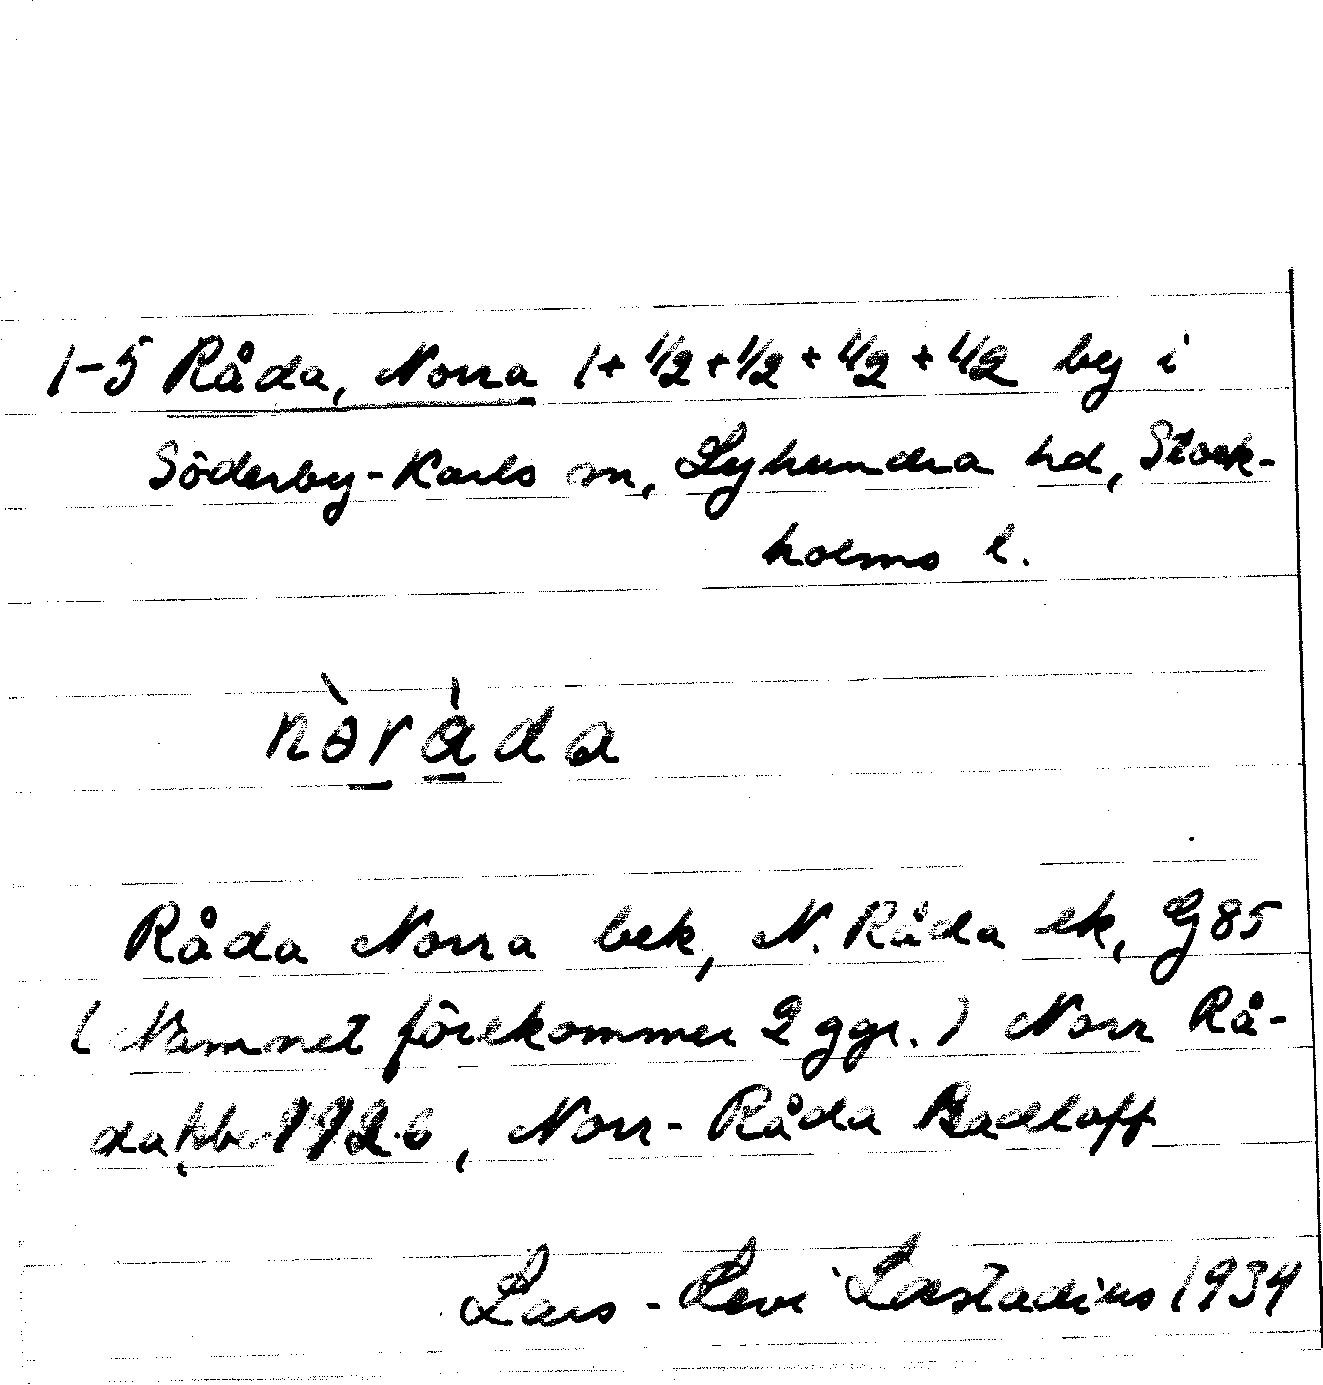 1-5 Råda, Norra 1+1/2+1/2+1/2+1/2 by i
Söderby-Karls sn, Lyhundra hd, Stock-
holms l.
nə̀rɑ̀da
Råda Norra bek, N. Råda ek, Gj85
(Namnet förekommer 2 ggr.) Norr Rå-
da 1926, Norr-Råda Badloff
Lars-Levi Læstadius 1934